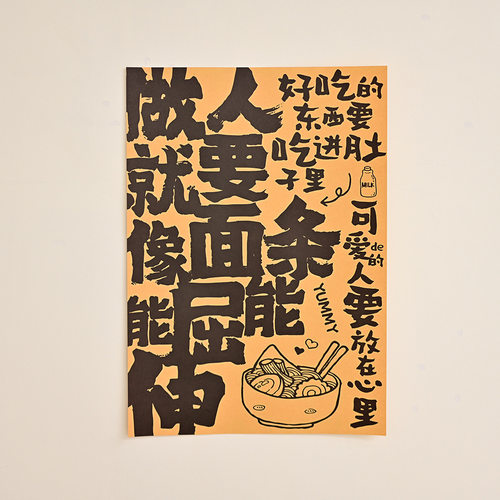 做人
就要
像面条
能屈能
伸
好吃的
东西要
吃进肚
子里
MILK
可爱的人要放在心里
de
YUMMY